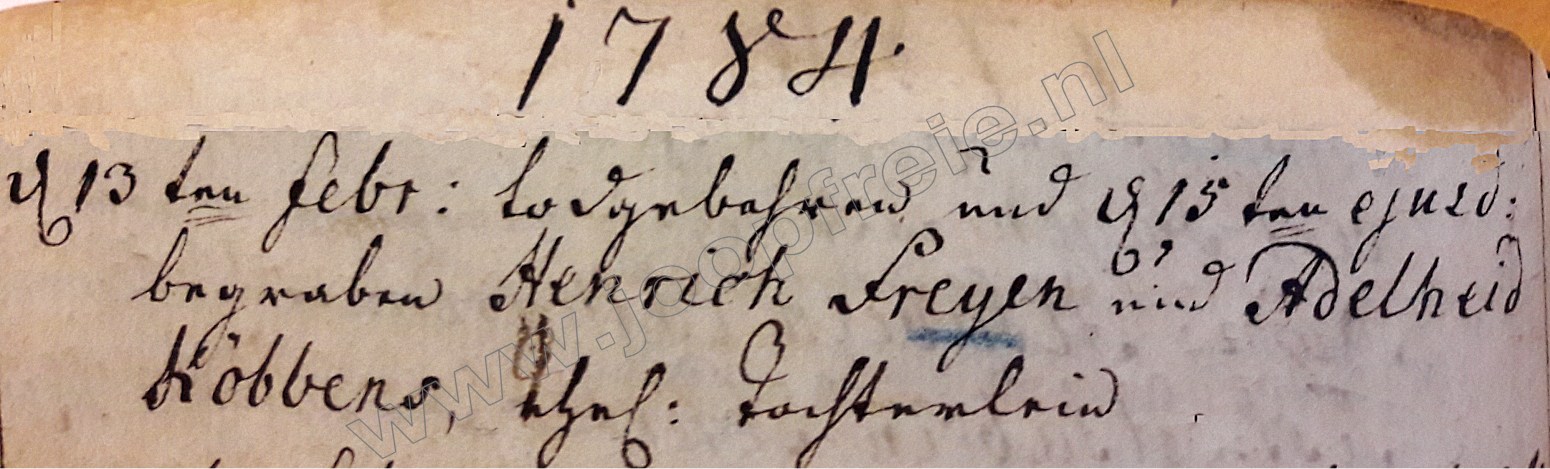 1784.
d 13 ten Febr: todgebohren und d 15 ten ejusd:
begraben Henrich Freyen und Adelheid
Köbbens, ehel: tochterlein
www.joopfreie.nl